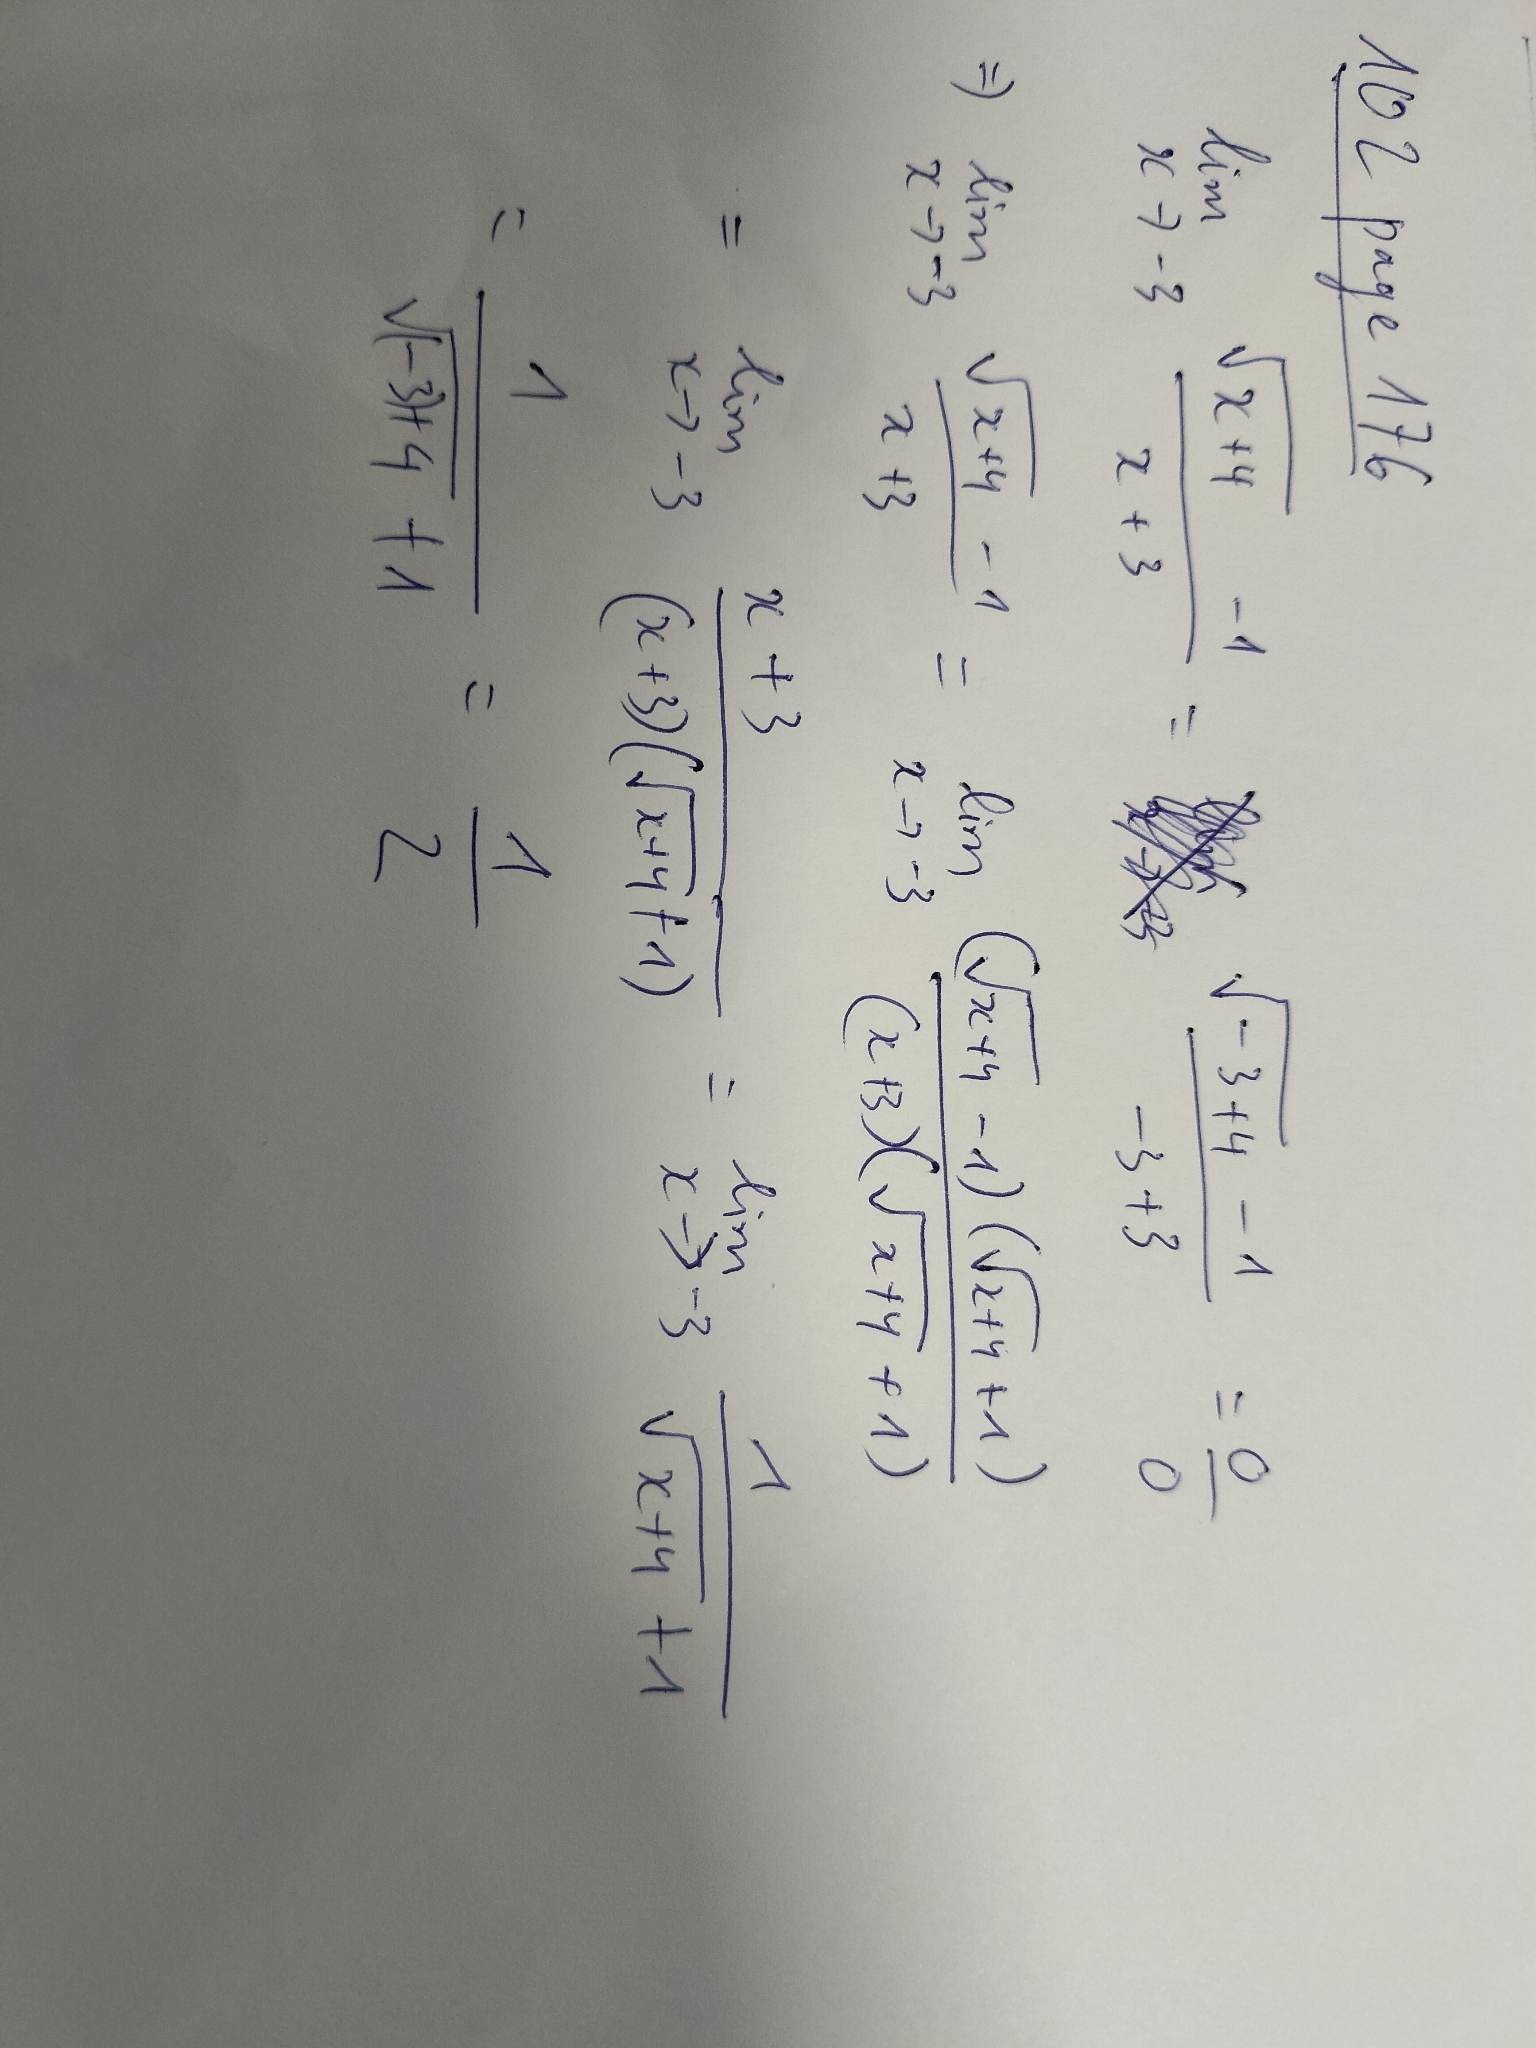 102 page 176
lim x→-3 (√(x+4) - 1)/(x+3) = (√(-3+4) - 1)/(-3+3) = 0/0
=> lim x→-3 (√(x+4) - 1)/(x+3) = lim x→-3 ((√(x+4) - 1)(√(x+4) + 1))/((x+3)(√(x+4) + 1))
= lim x→-3 (x+3)/((x+3)(√(x+4) + 1)) = lim x→-3 1/(√(x+4) + 1)
= 1/(√((-3)+4) + 1) = 1/2